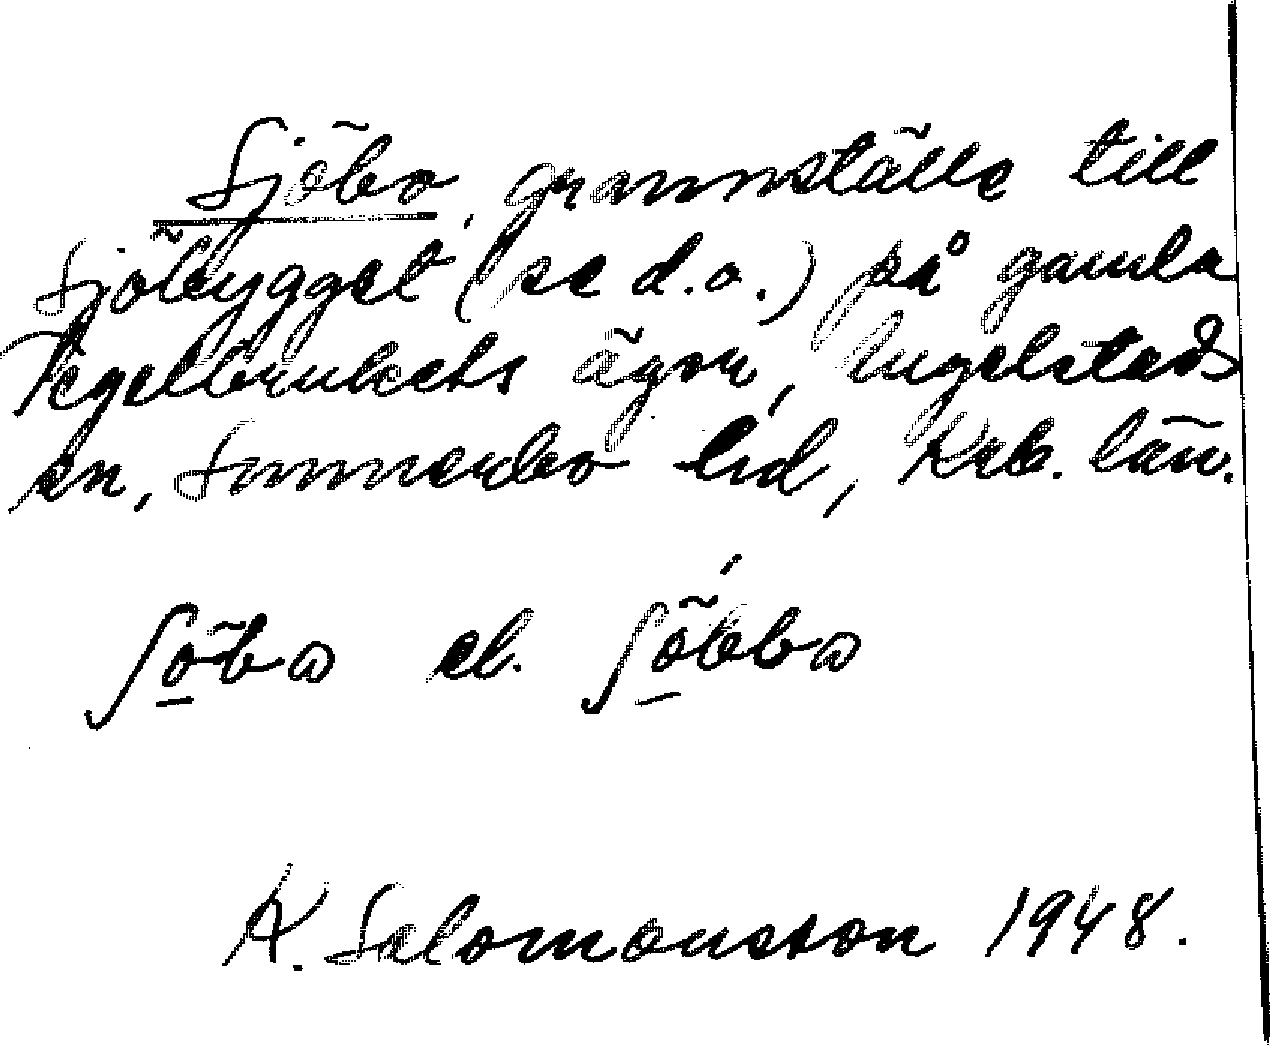 Sjöbo, grannställe till
Sjöbygget (se d.o.) på gamla
Tegelbrukets ägor, Ingelstads
sn, Sunnerbo hd, Krb. län.
ʃöbɷ el. ʃöbbɷ
K. Salomonsson 1948.